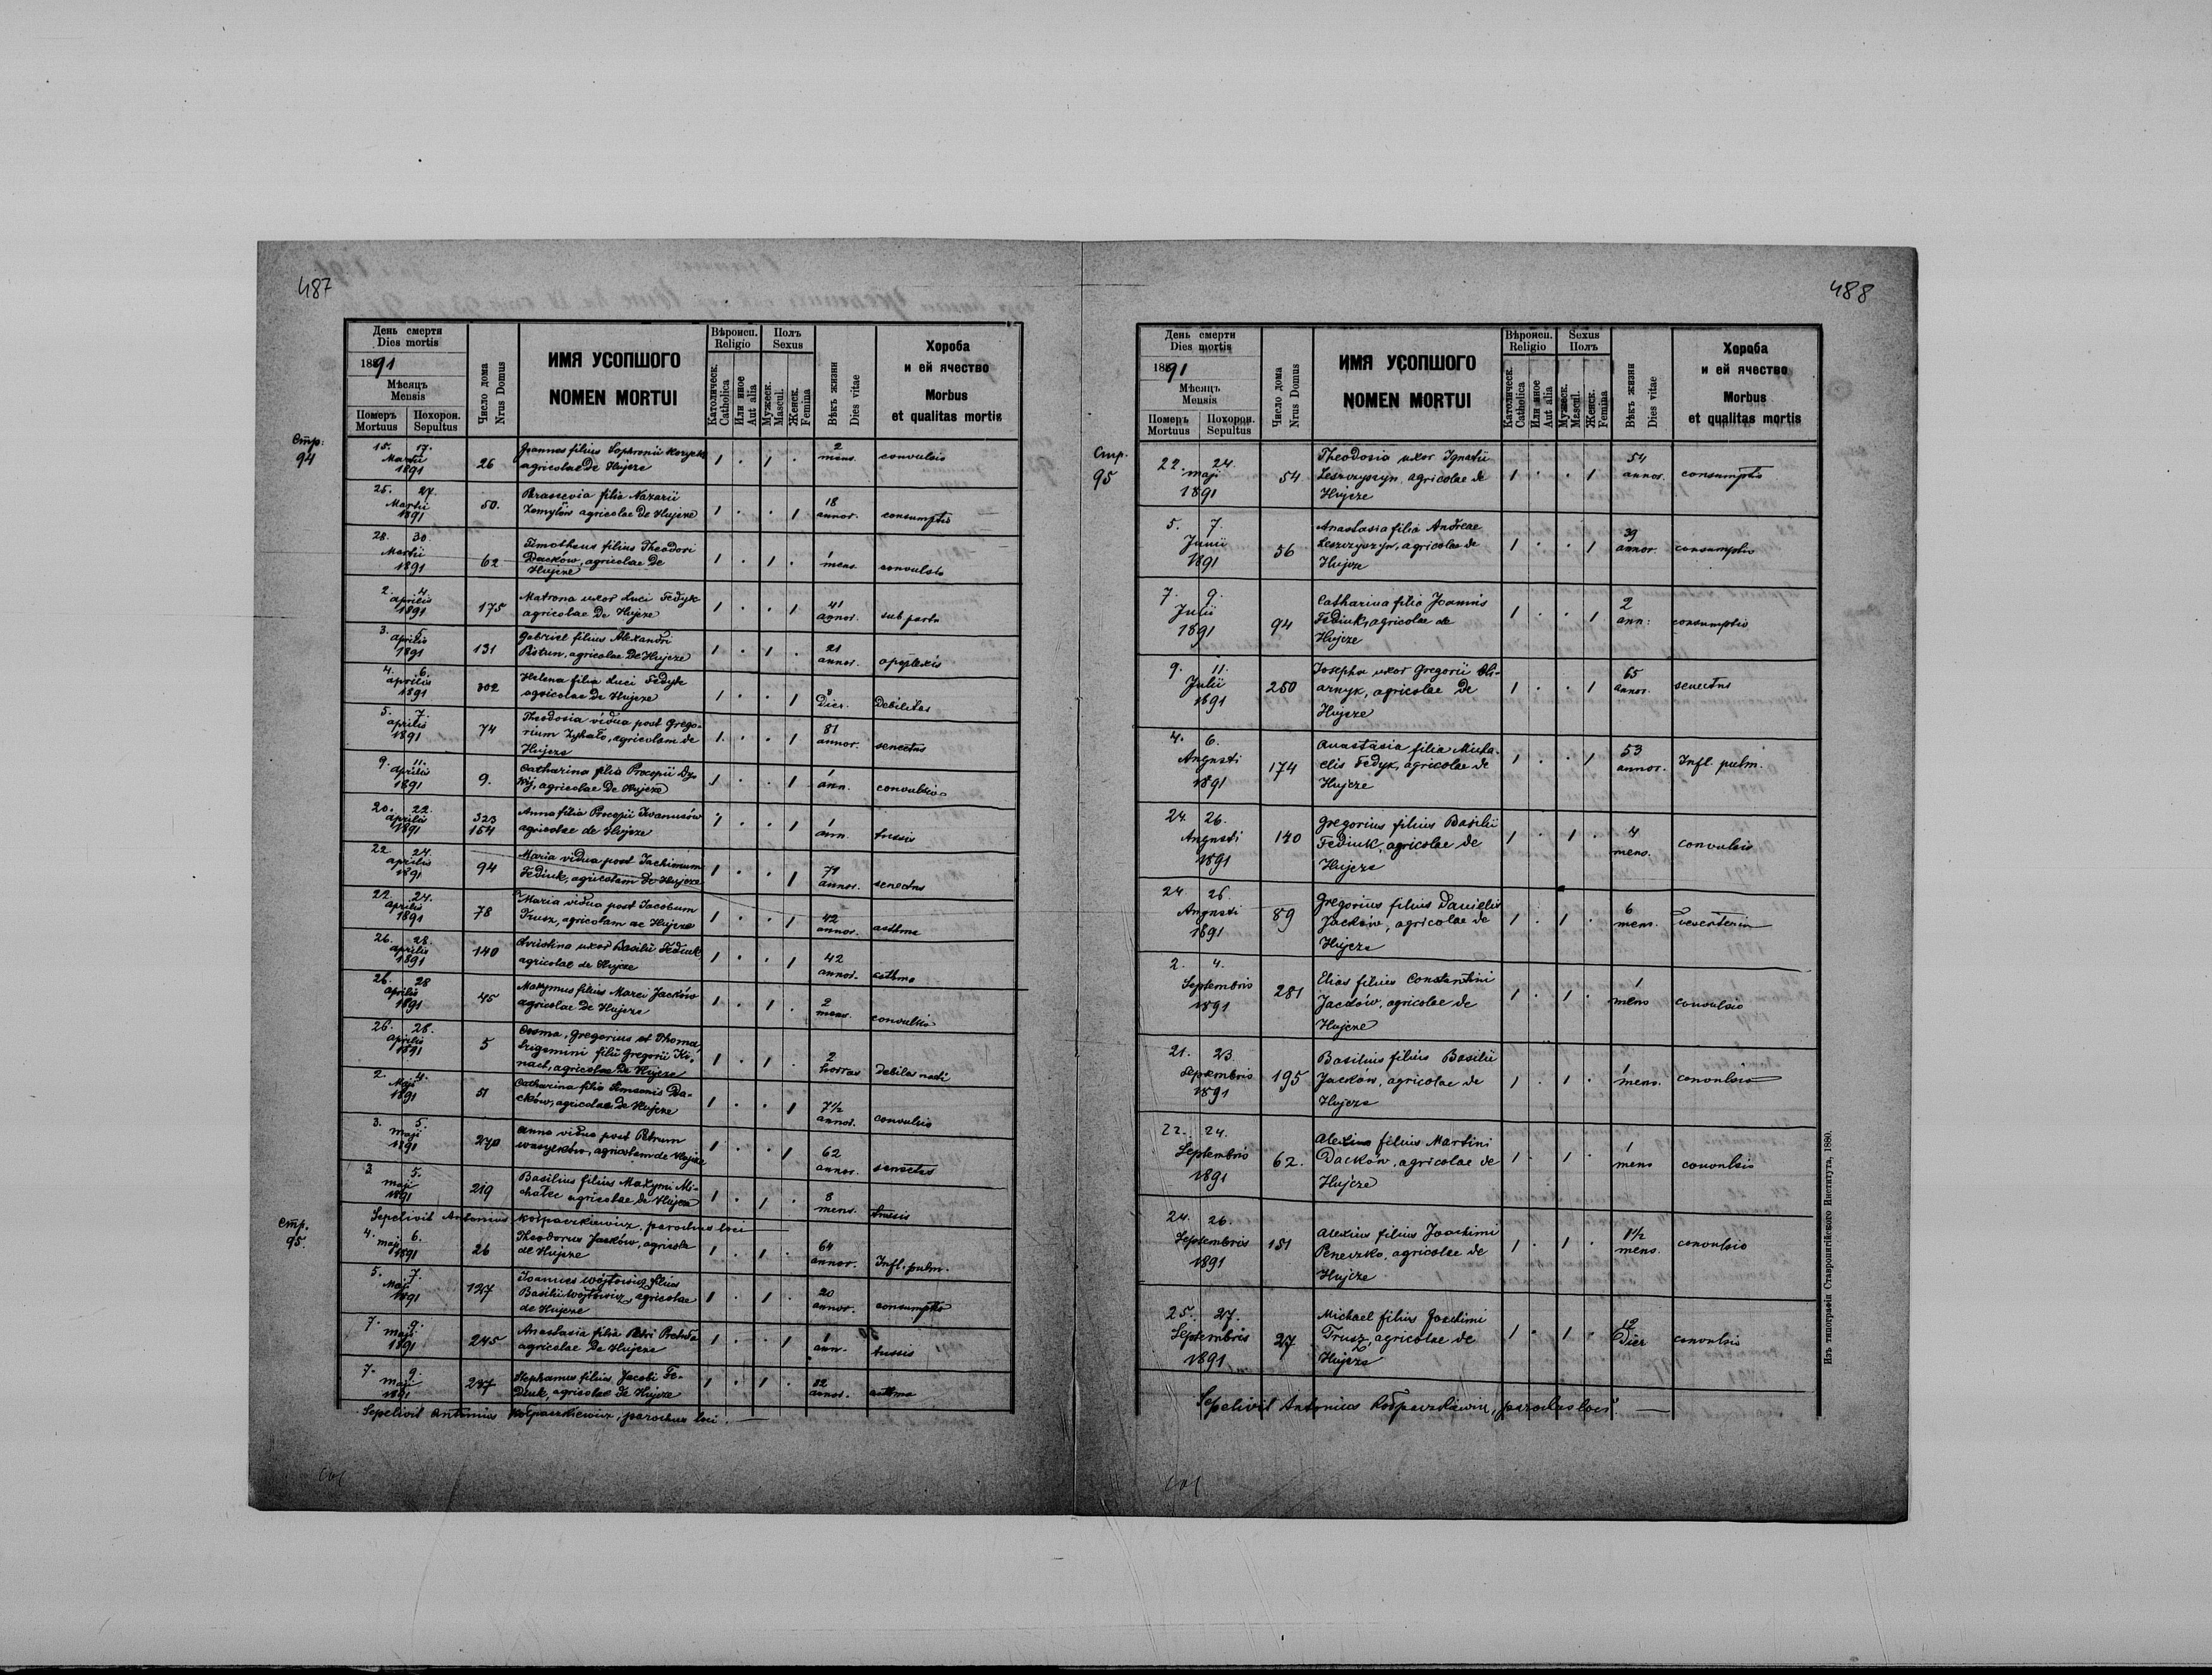 487
День смерти
Dies mortis
1891
Мѣсяцъ
Mensis
Померъ
Mortuus
Похорон.
Sepultus
Число дома
Nrus Domus
ИМЯ УСОПШОГО
NOMEN MORTUI
Вѣроисп.
Religio
Католическ.
Catholica
Или иное
Aut alia
Полъ
Sexus
Мужеск.
Mascul.
Женск.
Femina
Вѣкъ жизни
Dies vitae
Хороба
и ей ячество
Morbus
et qualitas mortis
Стр:
94
15. 17.
Martii
1891
26
Joannes filius Sophronii
agricolae de Hujcze
1 . 1 .
2
mens.
convulsio
25. 27.
Martii
1891
50.
Parascevia filia Nazarii
agricolae de Hujcze
1 . . 1
18
annor.
consumptio
28. 30.
Martii
1891
62
Timotheus filius Theodori
Dacków, agricolae de
Hujcze
1 . 1 .
1
mens.
convulsio
2. 4.
aprilis
1891
175
Matrona uxor Luci Fedyk
agricolae de Hujcze
1 . . 1
41
annor.
sub partu
3. 5.
aprilis
1891
131
Gabriel filius Alexandri
Pistun, agricolae de Hujcze
1 . 1 .
21
annor.
apoplexis
4. 6.
aprilis
1891
302
Helena filia Luci Fedyk
agricolae de Hujcze
1 . . 1
Dier.
Debilitas
5. 7.
aprilis
1891
74
Theodosia vidua post Grego-
rium Zyhało, agricolam de
Hujcze
1 . . 1
81
annor.
senectus
9. 11.
aprilis
1891
9.
Catharina filia Procopii
agricolae de Hujcze
1 . . 1
1
ann.
convulsio
20. 22.
aprilis
1891
323
164
Anna filia Procopii Iwanusów
agricolae de Hujcze
1 . . 1
1
ann.
tussis
22. 24.
aprilis
1891
94
Maria vidua post Jachimum
Fediuk, agricolam de Hujcze
1 . . 1
71
annor.
senectus
22. 24.
aprilis
1891
78
Maria vidua post Jacobum
Trusz, agricolam de Hujcze
1 . . 1
42
annor.
asthma
26. 28.
aprilis
1891
140
Christina uxor Basilii Fediuk
agricolae de Hujcze
1 . . 1
42
annor.
asthma
26. 28
aprilis
1891
45
Maxymus filius Marci Jacków
agricolae de Hujcze
1 . 1 .
2
mens.
convulsio
26. 28.
aprilis
1891
5
Cosma, Gregorius et Thoma
trigemini filii Gregorii Ki-
nach, agricolae de Hujcze
1 . 1 .
2
horras
debiles nati
2. 4.
Maji
1891
51
Catharina filia Simeonis Da-
cków, agricolae de Hujcze
1 . . 1
7½
annor.
convulsio
3. 5.
maji
1891
270
Anna vidua post Petrum
Wasylków, agricolam de Hujcze
1 . . 1
62
annor.
senectus
3. 5.
maji
1891
219
Basilius filius Maxymi Mi-
chalec agricolae de Hujcze
1 . 1 .
8
mens.
tussis
Sepelivit Antonius Kołpaczkiewicz, parochus loci
Стр.
95.
4. 6.
maji
1891
26
Theodorus Jacków, agricola
de Hujcze
1 . 1 .
64
annor.
Infl. pulm.
5. 7.
Maji
1891
127
Joannes Wójtowicz filius
Basilii Wójtowicz, agricolae
de Hujcze
1 . 1 .
20
annor.
consumptio
7. 9.
maji
1891
245
Anastasia filia Petri
agricolae de Hujcze
1 . . 1
1
ann.
tussis
7. 9.
maji
1891
237
Stephanus filius Jacobi Fe-
diuk, agricolae de Hujcze
1 . 1 .
82
annor.
asthma
Sepelivit Antonius Kołpaczkiewicz, parochus loci.
488
День смерти
Dies mortis
1891
Мѣсяцъ
Mensis
Померъ
Mortuus
Похорон.
Sepultus
Число дома
Nrus Domus
ИМЯ УСОПШОГО
NOMEN MORTUI
Вѣроисп.
Religio
Католическ.
Catholica
Или иное
Aut alia
Sexus
Полъ
Мужеск.
Mascul.
Женск.
Femina
Вѣкъ жизни
Dies vitae
Хороба
и ей ячество
Morbus
et qualitas mortis
Стр.
95
22. 24.
maji
1891
54
Theodosia uxor Ignatii
Leszczyszyn, agricolae de
Hujcze
1 . . 1
54
annor.
consumptio
5. 7.
Junii
1891
56
Anastasia filia Andreae
Leszczyszyn, agricolae de
Hujcze
1 . . 1
39
annor.
consumptio
7. 9.
Julii
1891
94
Catharina filia Joannis
Fediuk, agricolae de
Hujcze
1 . . 1
2
ann:
consumptio
9. 11.
Julii
1891
250
Josepha uxor Gregorii Oli-
arnyk, agricolae de
Hujcze
1 . . 1
65
annor.
senectus
4. 6.
Augusti
1891
174
Anastasia filia Micha-
elis Fedyk, agricolae de
Hujcze
1 . . 1
53
annor.
Infl. pulm.
24. 26.
Augusti
1891
140
Gregorius filius Basilii
Fediuk, agricolae de
Hujcze
1 . 1 .
4
mens.
convulsio
24. 26.
Augusti
1891
89
Gregorius filius Danielis
Jacków, agricolae de
Hujcze
1 . 1 .
6
mens.
2. 4.
Septembris
1891
281
Elias filius Constantini
Jacków, agricolae de
Hujcze
1 . 1 .
1
mens
convulsio
21. 23.
Septembris
1891
195
Basilius filius Basilii
Jacków, agricolae de
Hujcze
1 . 1 .
1
mens.
convulsio
22. 24.
Septembris
1891
62.
Alexius filius Martini
Dacków, agricolae de
Hujcze
1 . 1 .
1
mens
convulsio
24. 26.
Septembris
1891
151
Alexius filius Joachimi
Peneczko, agricolae de
Hujcze
1 . 1 .
1½
mens.
convulsio
25. 27.
Septembris
1891
27
Michael filius Joachimi
Trusz, agricolae de
Hujcze
1 . 1 .
12
Dier
convulsio
Sepelivit Antonius Kołpaczkiewicz, parochus loci.
Изъ типографіи Ставропигійского Института, 1880.